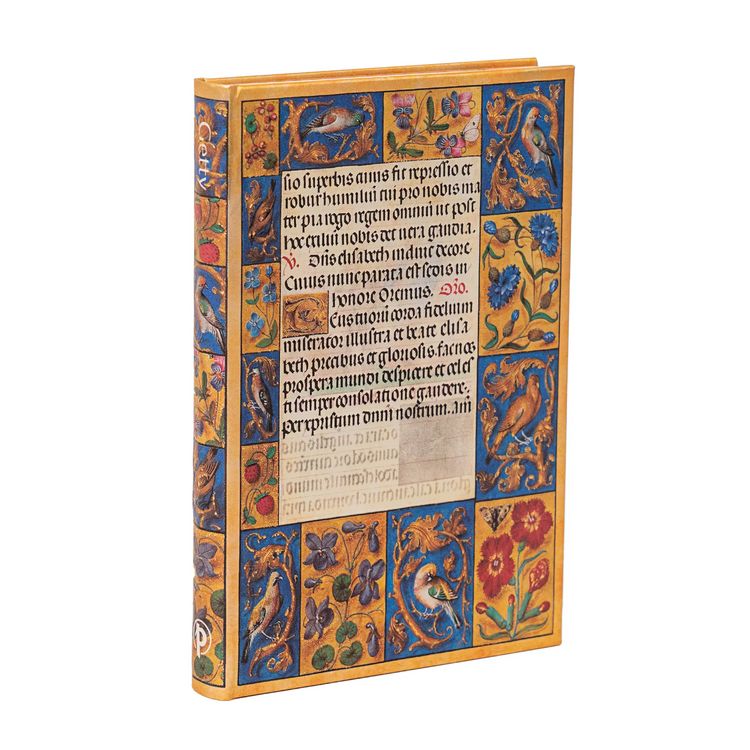 Getty
sio superbis cuius fit repressio et
robur humiliū cui pro nobis ma
ter pia rogo regem omniū ut post
hoc exiliū nobis det vera gaudia.
V. Dn̄s elisabeth induit decore
Cuius nūc parata est sedis in
honore Oremus. Oro.
Eus tuorū corda fidelium
miserator illustra et beate elisa
beth precibus et gloriosis. fac nos
prospera mundi despicere et celes
ti semper consolatione gaudere.
Per xpristum dnm nostrum. am
P